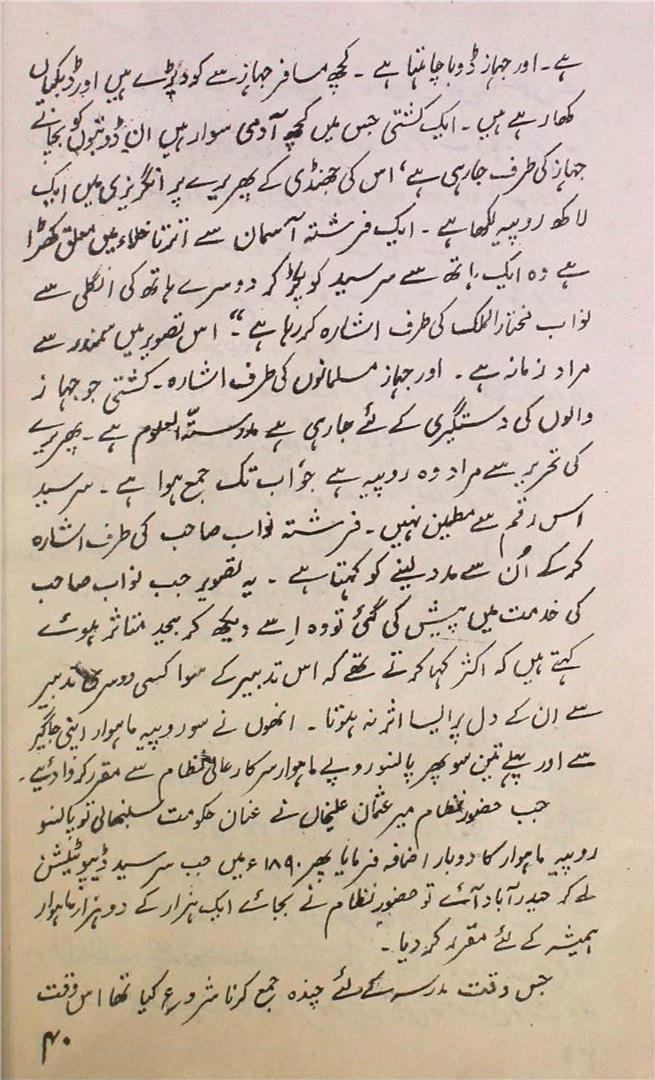 ہے۔ اور جہاز ڈوبا چاہتا ہے۔ کچھ مسافر جہاز سے کود پڑے ہیں اور ڈبکیاں
کھا رہے ہیں۔ ایک کشتی جس میں کچھ آدمی سوار ہیں ان ڈوبتوں کو بچانے
جہاز کی طرف جا رہی ہے، اس کی جھنڈی کے پھریرے پر انگریزی میں ایک
لاکھ روپیہ لکھا ہے۔ ایک فرشتہ آسمان سے اترتا خلاء میں معلق کھڑا
ہے وہ ایک ہاتھ سے سرسید کو پکڑ کر دوسرے ہاتھ کی انگلی سے
نواب مختار الملک کی طرف اشارہ کر رہا ہے۔“ اس تصویر میں سمندر سے
مراد زمانہ ہے۔ اور جہاز مسلمانوں کی طرف اشارہ۔ کشتی جو جہاز
والوں کی دستگیری کے لئے جا رہی ہے مدرستہ العلوم ہے۔ پھریرے
کی تحریر سے مراد وہ روپیہ ہے جو اب تک جمع ہوا ہے۔ سرسید
اس رقم سے مطمین نہیں۔ فرشتہ نواب صاحب کی طرف اشارہ
کر کے اُن سے مدد لینے کو کہتا ہے۔ یہ تصویر جب نواب صاحب
کی خدمت میں پیش کی گئی تو وہ اِسے دیکھ کر بیحد متاثر ہوئے
کہتے ہیں کہ اکثر کہا کرتے تھے کہ اس تدبیر کے سوا کسی دوسری تدبیر
سے ان کے دل پر ایسا اثر نہ ہوتا۔ انھوں نے سو روپیہ ماہوار اپنی جاگیر
سے اور پہلے تین سو پھر پانسو روپے ماہوار سرکار عالی نظام سے مقرر کروا دئیے۔
جب حضور نظام میر عثمان علیخاں نے عنان حکومت سنبھالی تو پانسو
روپیہ ماہوار کا دوبار اضافہ فرمایا پھر ۱۸۹۰ء میں جب سرسید ڈیپوٹیشن
لے کر حیدرآباد آئے تو حضور نظام نے بجائے ایک ہزار کے دو ہزار ماہوار
ہمیشہ کے لئے مقرر کر دیا۔
جس وقت مدرسہ کے لئے چندہ جمع کرنا شروع کیا تھا اس وقت
۴۰